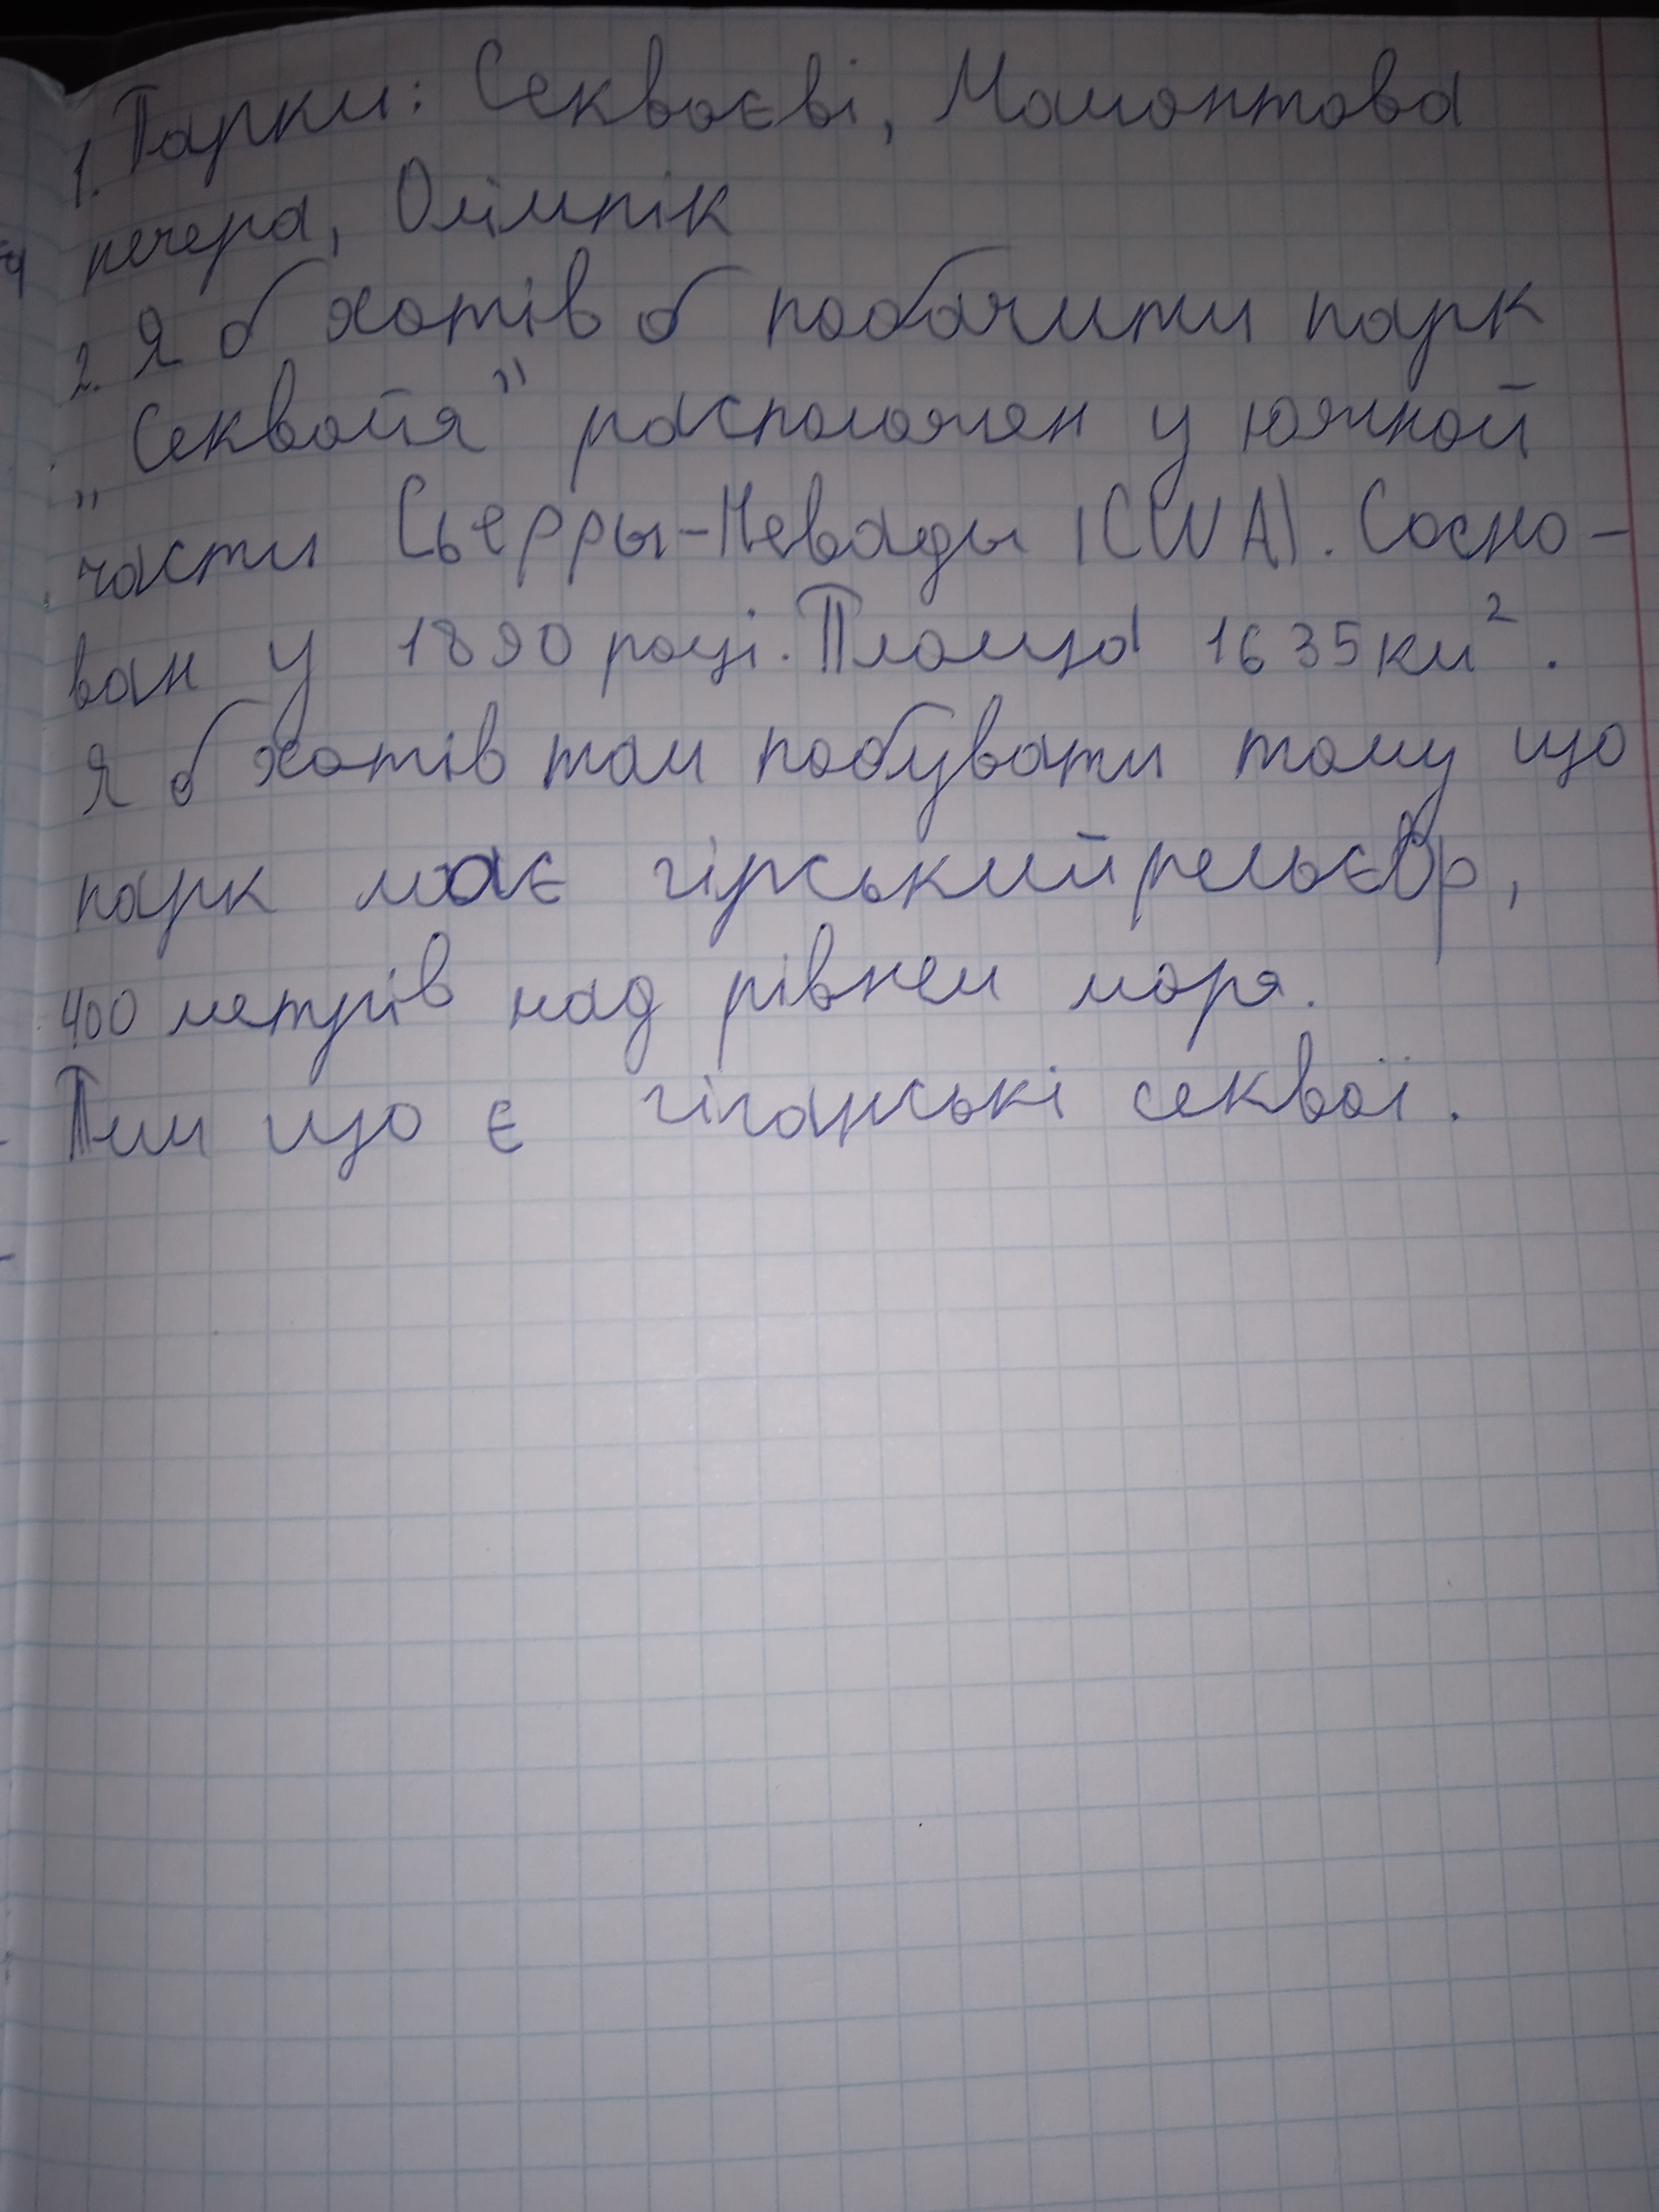 1. Парки: Секвоєві, Мамонтова
печера, Олімпік
2. Я б хотів б побачити парк
„Секвойя" расположен у южной
части Сьерры-Невады (США). Сосно-
ван у 1890 році. Площа 1635 км².
Я б хотів там побувати тому що
парк має гірський рельєф,
400 метрів над рівнем моря.
Тим що є гіганські секвої.